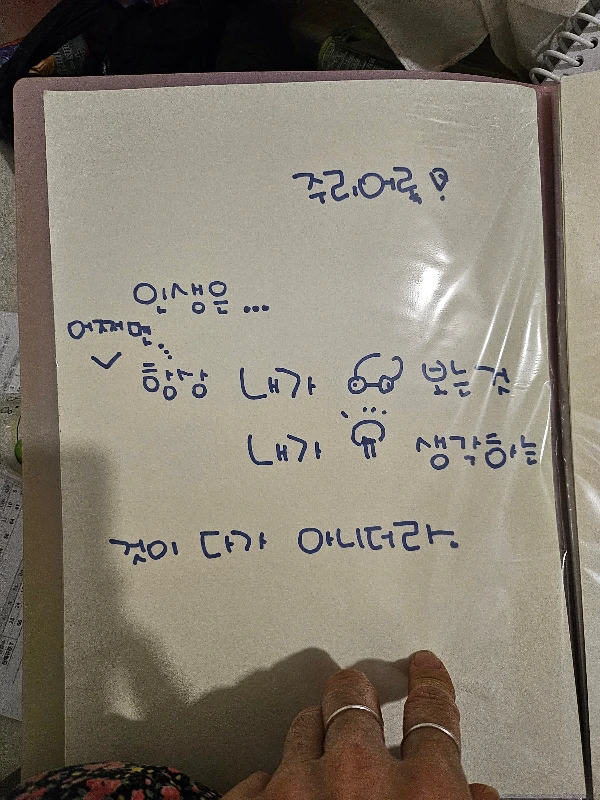 주리어록!
인생은...
어쩌면...
항상 내가 보는 것
내가 생각하는
것이 다가 아니더라.